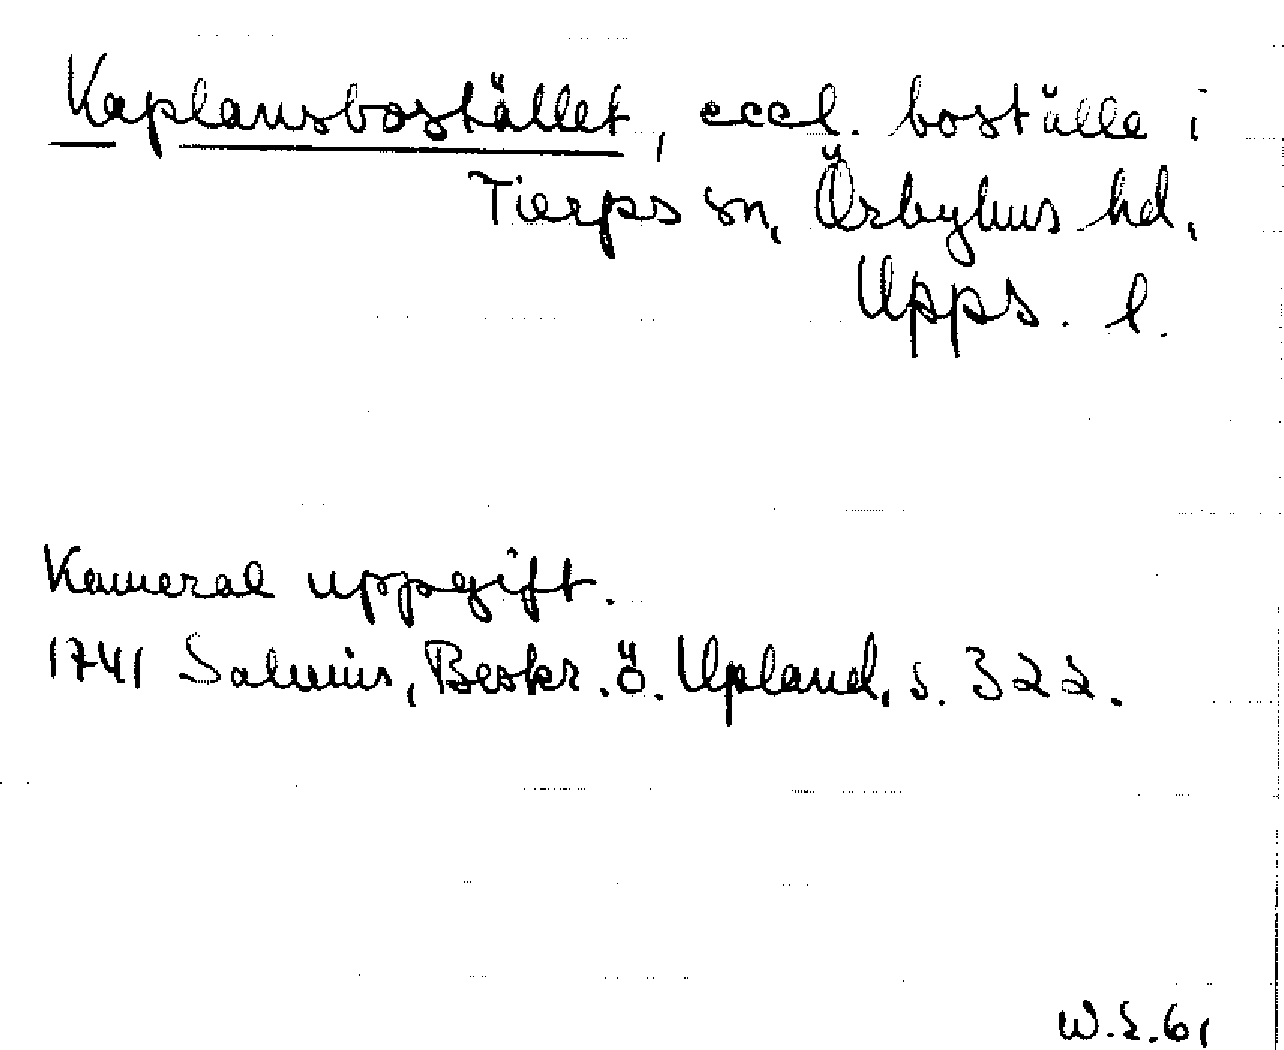 Kaplansbostället, eccl. boställe i
Tierps sn, Örbyhus hd,
Upps. l.
Kameral uppgift.
1741 Salmin, Beskr. ö. Upland, s. 322.
W.S.61